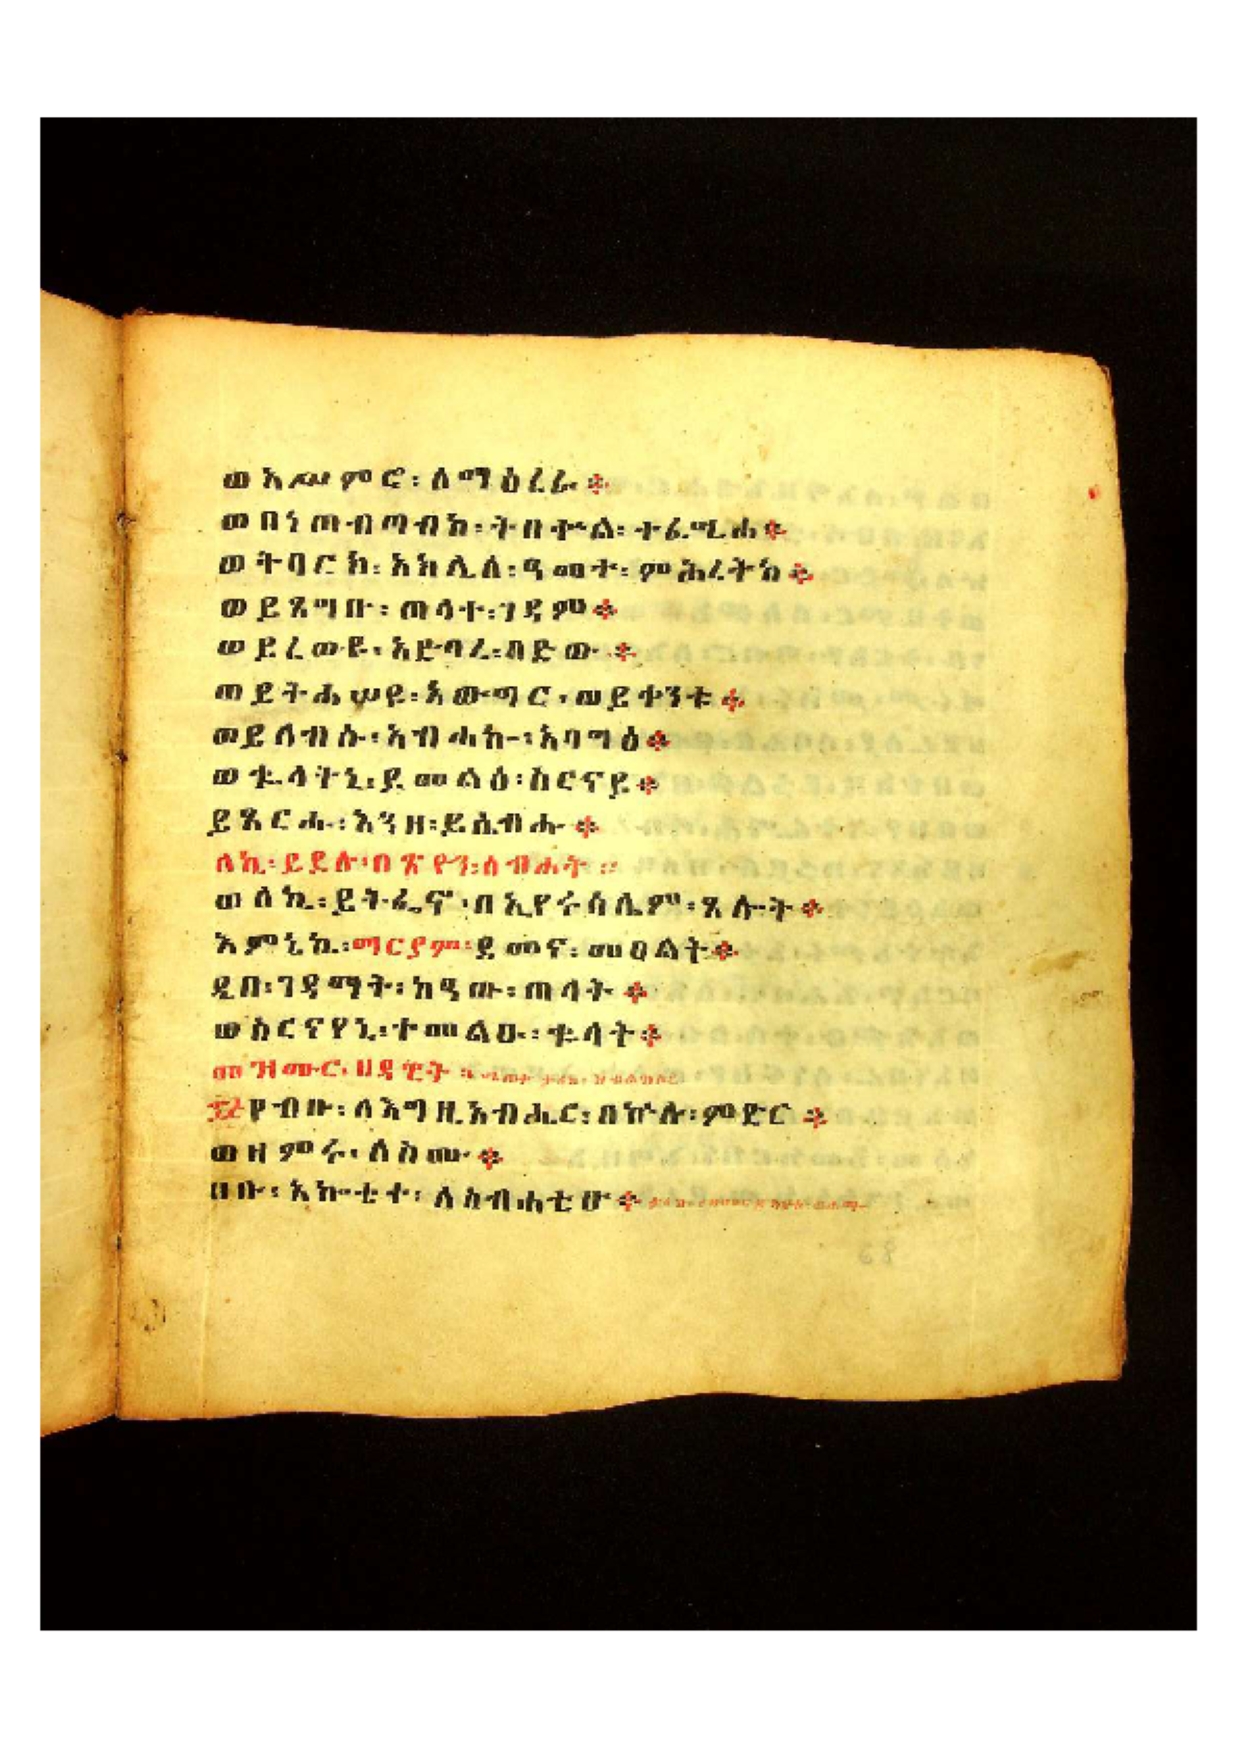 ወአሥምሮ፡ ለማዕረራ፨
ወበነጠብጣብከ፡ ትበቍል፡ ተፈሢሓ፨
ወትባርክ፡ አክሊለ፡ ዓመተ፡ ምሕረትከ፨
ወይጸግቡ፡ ጠላተ፡ ገዳም፨
ወይረውዩ፡ አድባረ፡ በድው፨
ወይትሐሠዩ፡ አውግር፡ ወይቀንቱ፨
ወይለብሱ፡ አብሓኰ፡ አባግዕ፨
ወቈላትኒ፡ ይመልዕ፡ ስርናየ፨
ይጸርሑ፡ እንዘ፡ ይሴብሑ፨
ለኪ፡ ይደሉ፡ በጽዮን፡ ስብሐት።
ወለኪ፡ ይትፌኖ፡ በኢየሩሳሌም፡ ጸሎት፨
እምኒኪ፡ ማርያም፡ ደመና፡ መዐልት፨
ዲበ፡ ገዳማት፡ ከዓው፡ ጠላት፨
ወስርናየኒ፡ ተመልዑ፡ ቈላት፨
መዝሙር፡ ዘዳዊት፡
የብቡ፡ ለእግዚአብሔር፡ በኵሉ፡ ምድር፨
ወዘምሩ፡ ለስሙ፨
ሀቡ፡ አኰቴተ፡ ለስብሐቲሁ፨